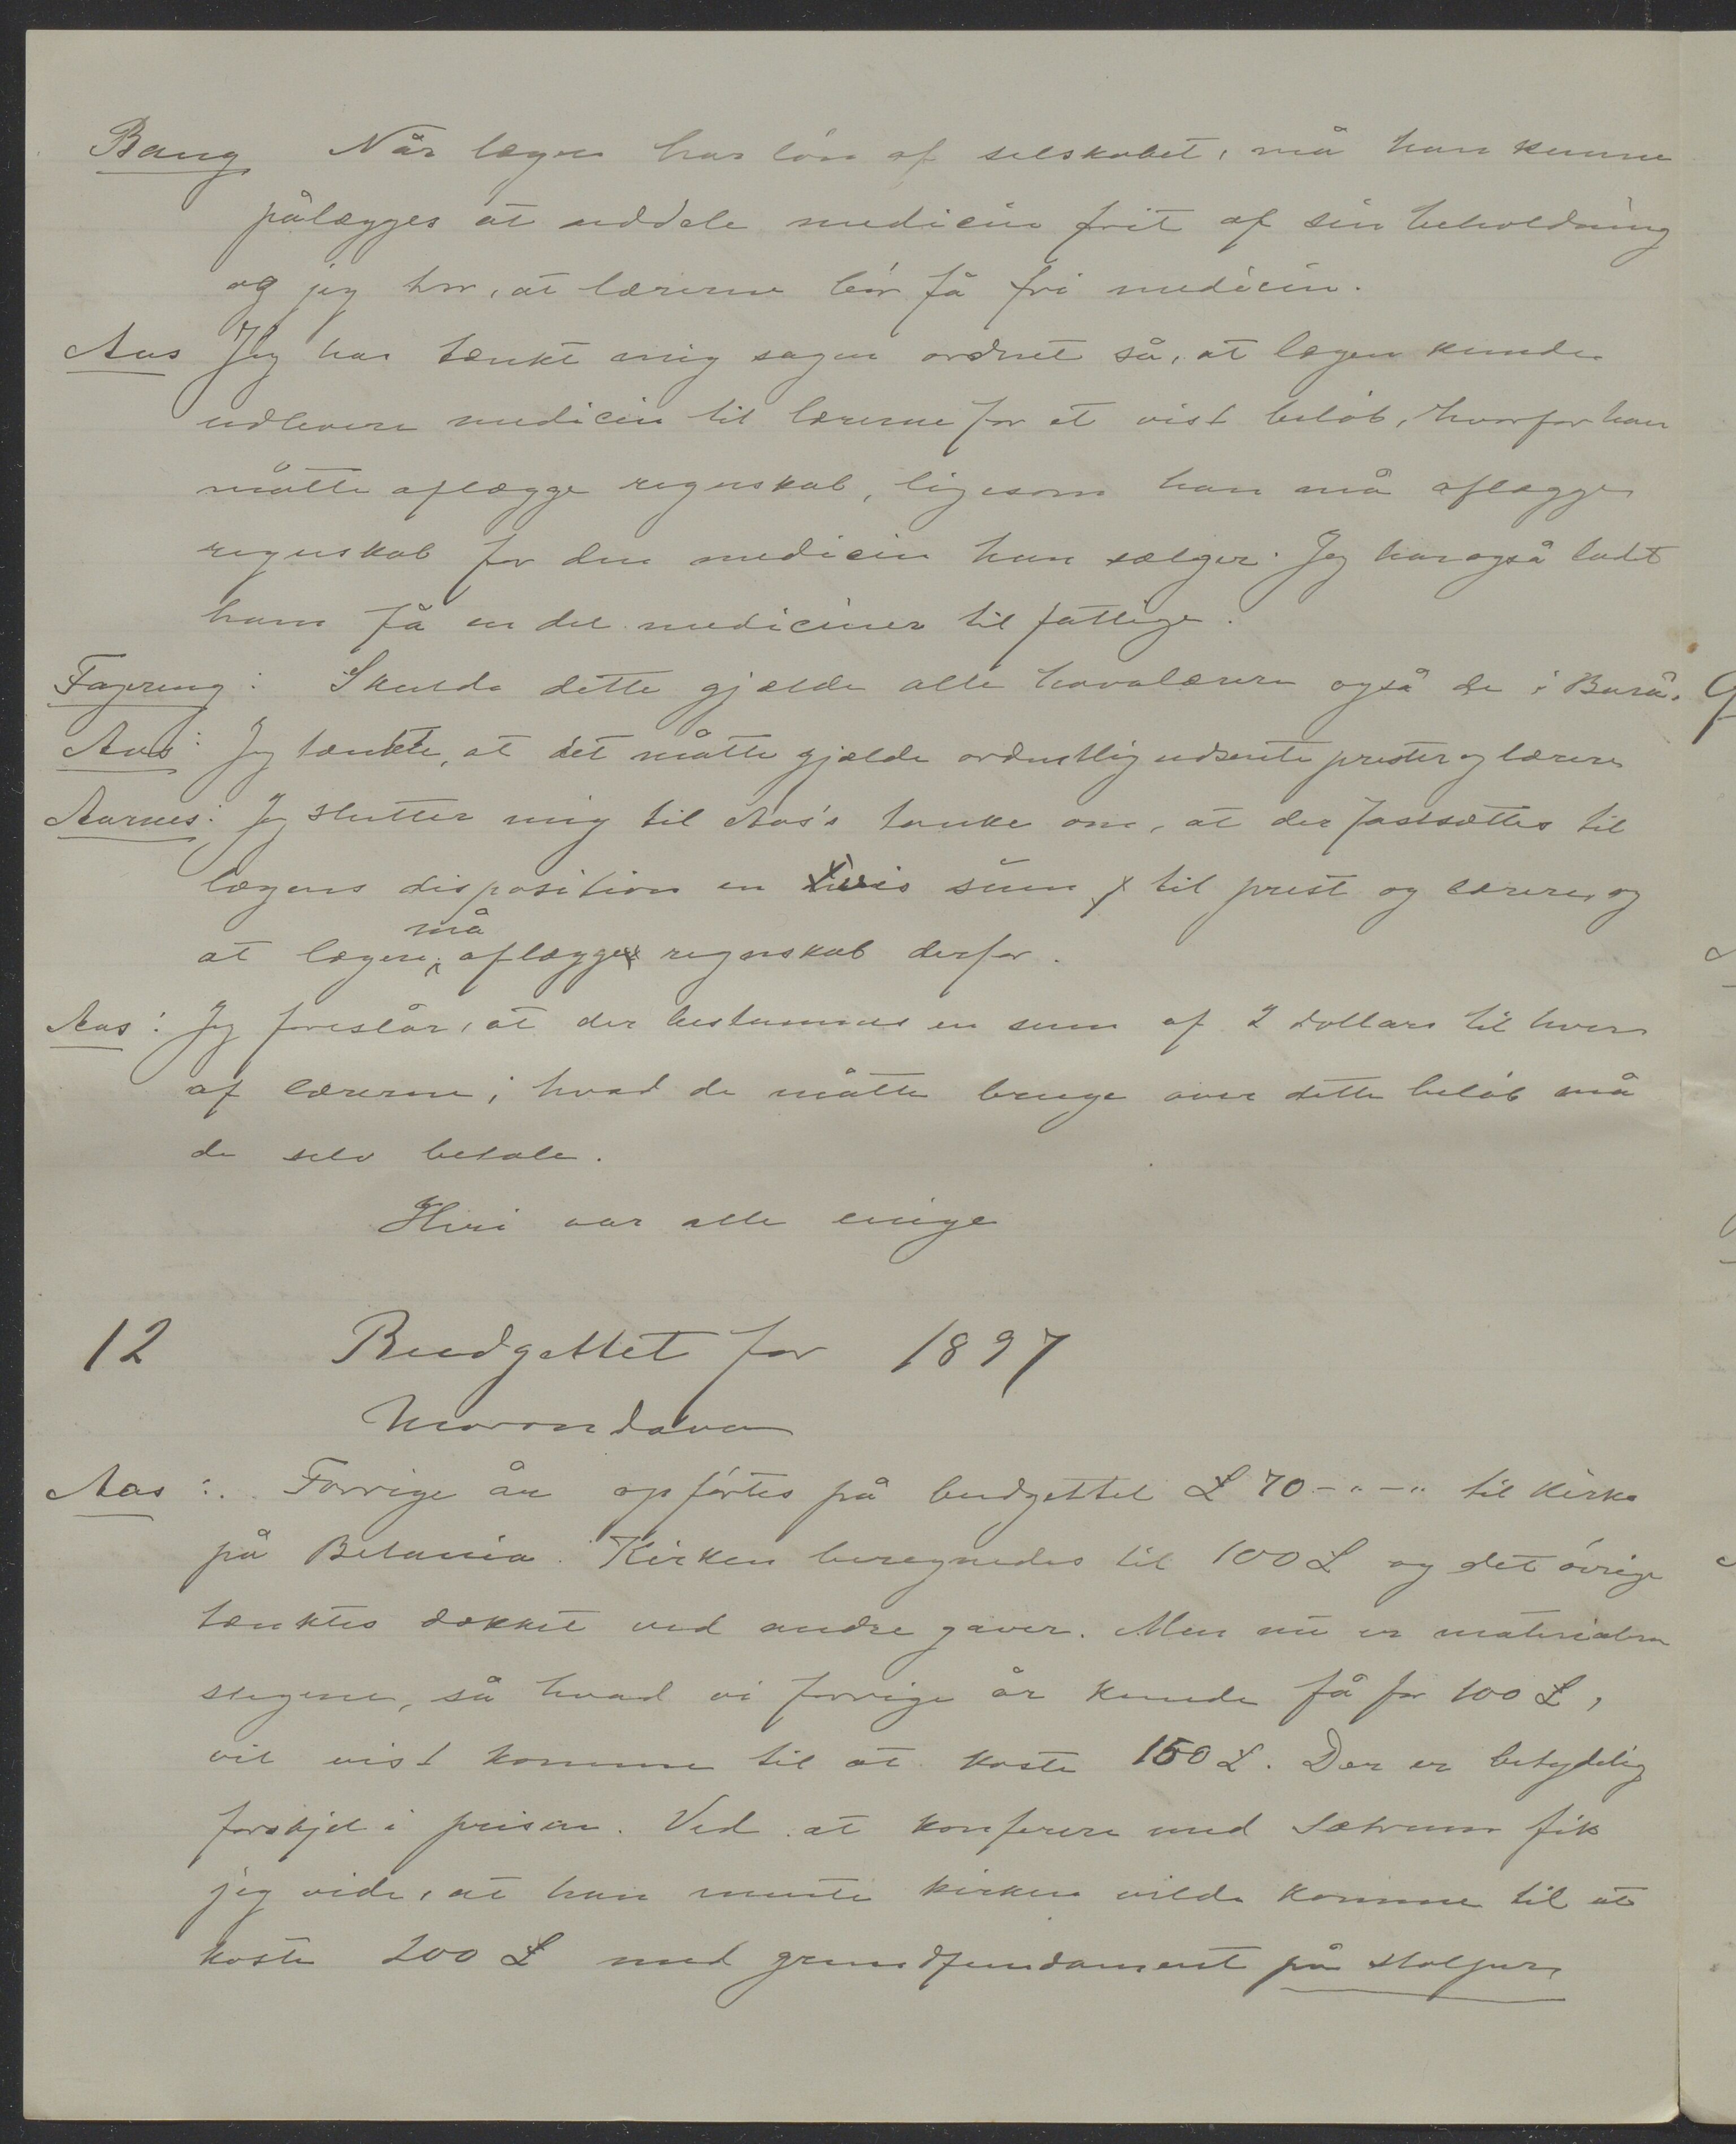 Bang Når lægen har løn af selskabet, må han kunne
pålægges at uddele medicin frit af sin beholdning
og jeg tror, at lærerne bør få fri medicin.
Aas Jeg har tænkt mig sagen ordnet så, at lægen kunde
udlevere medicin til lærerne for et vist beløb, hvorfor han
måtte aflægge regnskab, ligesom han må aflægge
regnskab for den medicin han sælger. Jeg har også ladt
ham få en del mediciner til fattige.
Fagereng: Skulde dette gjælde alle hovalærere også de i Bara.
Aas: Jeg tænkte, at det måtte gjælde ordentlig udsente prester og lærere
Aarnes: Jeg slutter mig til Aas's tanke om, at der fastsættes til
lægens disposition en vis sum til prest og lærere, og
må
at lægen aflægge regnskab derfor.
Aas: Jeg foreslår, at der bestemmes en sum af 2 dollars til hver
af lærerne; hvad de måtte bruge over dette beløb må
de selv betale.
Heri var alle enige
12 Budgettet for 1897
Morondava
Aas: Forrige år opførtes på budgettet £ 70-"-" til kirke
på Betania. Kirken beregnedes til 100 £ og det øvrige
tænktes dækket ved andre gaver. Men nu er materialerne
stegne, så hvad vi forrige år kunde få for 100 £,
vil vist komme til at koste 150 £. Der er betydelig
forskjel i prisen. Ved at konferere med Sætrum fik
jeg vide, at han mente kirken vilde komme til at
koste 200 £ med grundfundament på stolper,